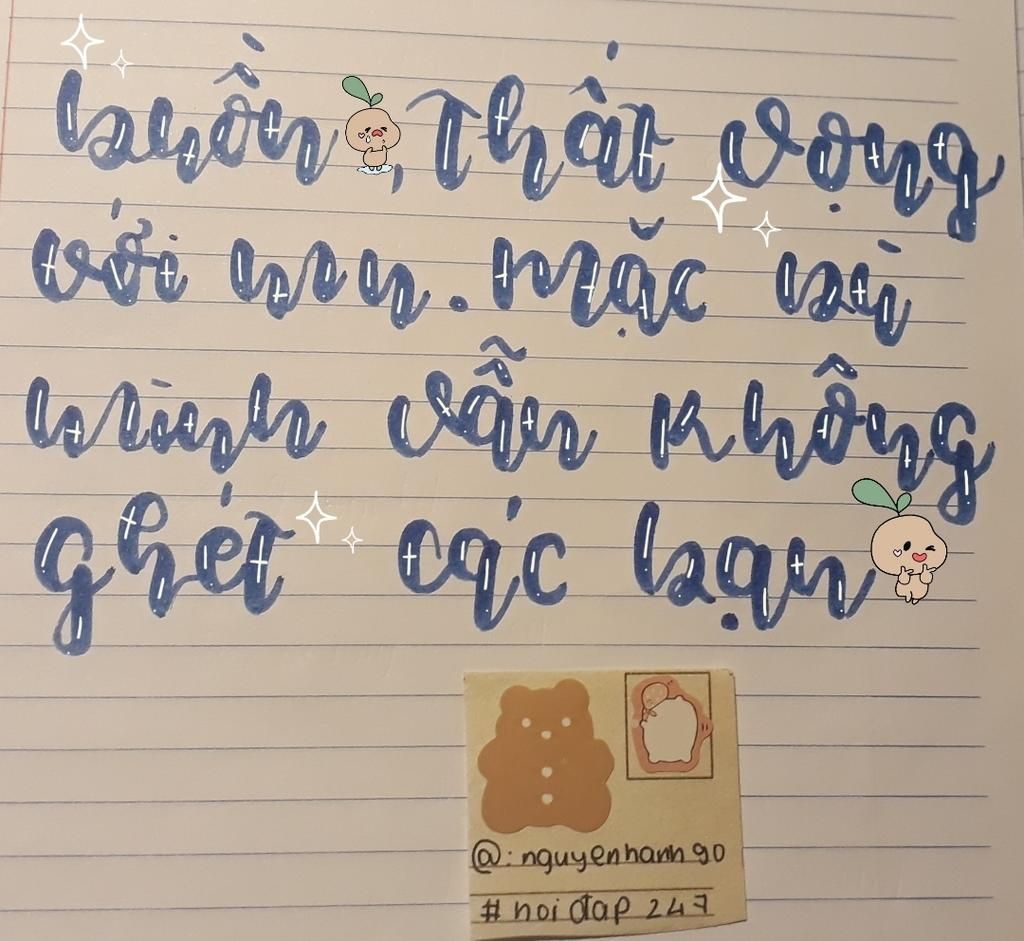 buồn, Thất vọng
với mn. mặc dù
mình vẫn không
ghét các bạn
@: nguyenhanh90
# hoi đap 247